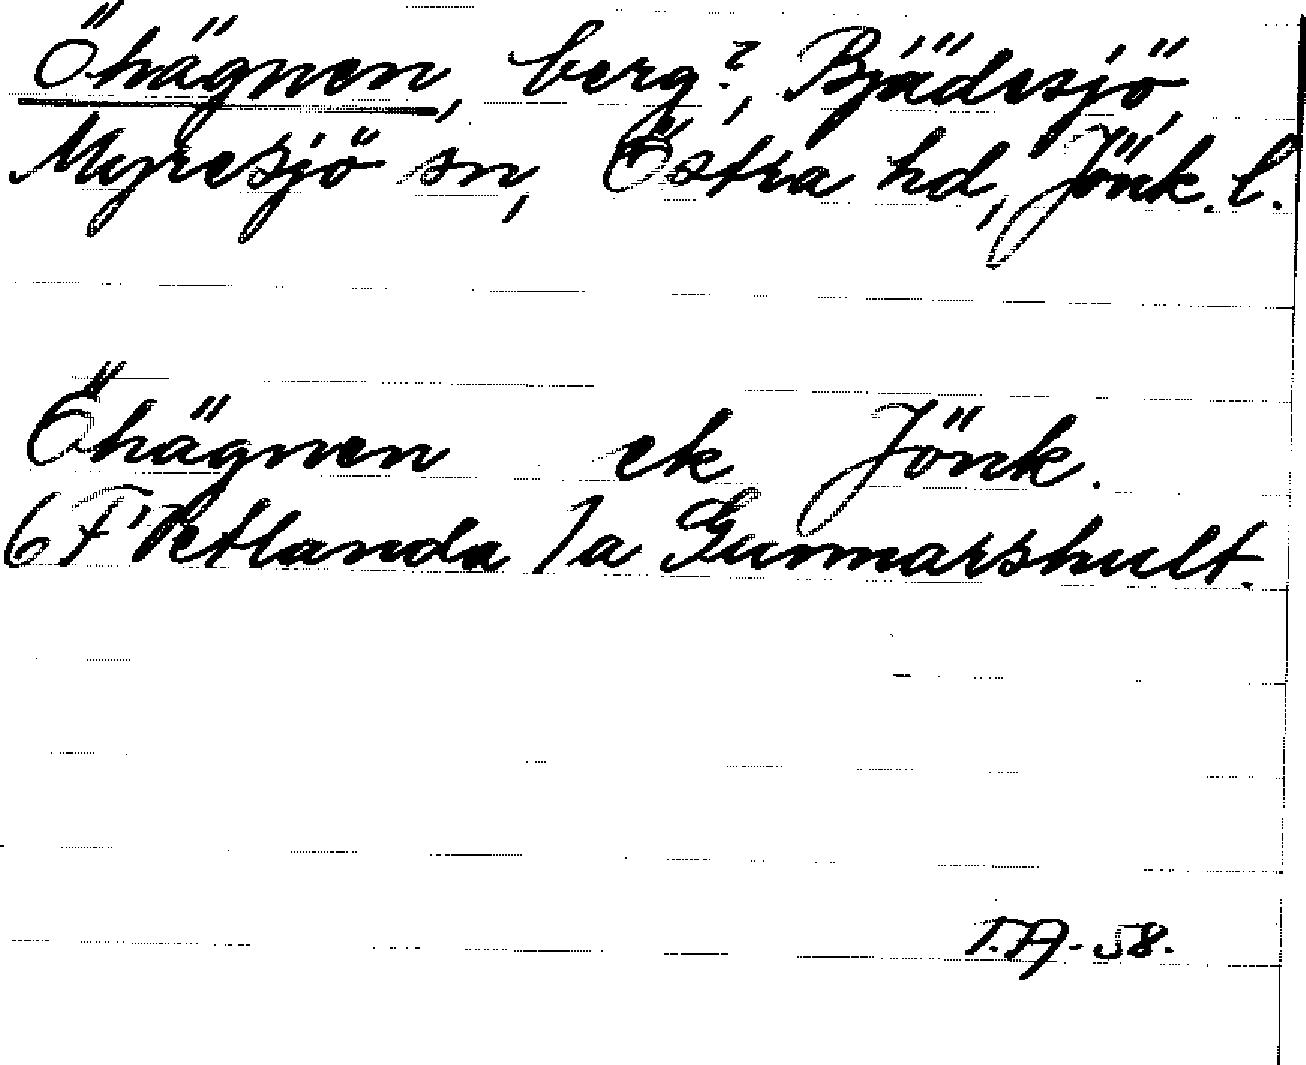 Öhägnen, berg?, Bjädesjö,
Myresjö sn, Östra hd, Jönk. l.
Öhägnen ek Jönk.
6 F Vetlanda 1a Gunnarshult.
T.A-58.